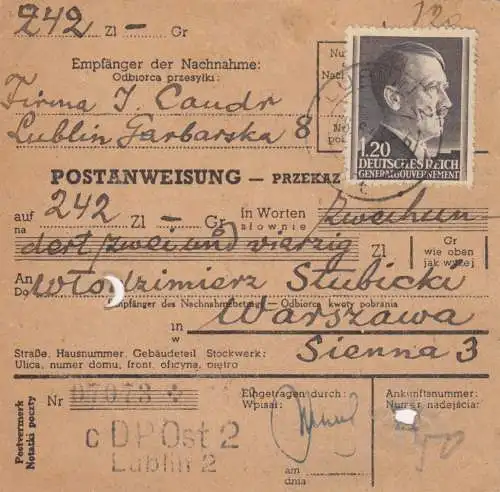 242 Zl — Gr
120
Empfänger der Nachnahme:
Odbiorca przesyłki:
Firma J. Caudr
Lublin Garbarska 8
1.20
DEUTSCHES REICH
GENERALGOUVERNEMENT
POSTANWEISUNG — PRZEKAZ
auf 242 Zl — Gr in Worten Zweihun
na słownie
dert (zwei und) vierzig Zl Gr
wie oben
jak wyżej
An Włodzimierz Stubicki
Do
Empfänger des Nachnahmebetrags — Odbiorca kwoty pobrania
in Warszawa
w
Straße, Hausnummer, Gebäudeteil, Stockwerk: Sienna 3
Ulica, numer domu, front, oficyna, piętro
Postvermerk
Notatki poczty
Nr 07073
Eingetragen durch:
Wpisał:
Ankunftsnummer:
Numer nadejścia:
c DP Ost 2
Lublin 2
am
dnia